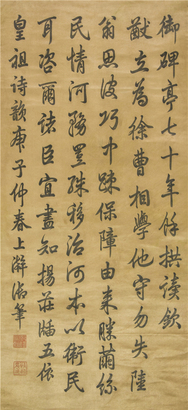 御碑亭七十年餘拱讀欽
猷立為徐曹相學他守勿失陸
翁思波巧中踈保障由來勝繭絲
民情河務殊移治河本以衛民
耳咨爾諸臣宜盡知揚莊牐五依
皇祖詩歌庚子仲春上澣御筆